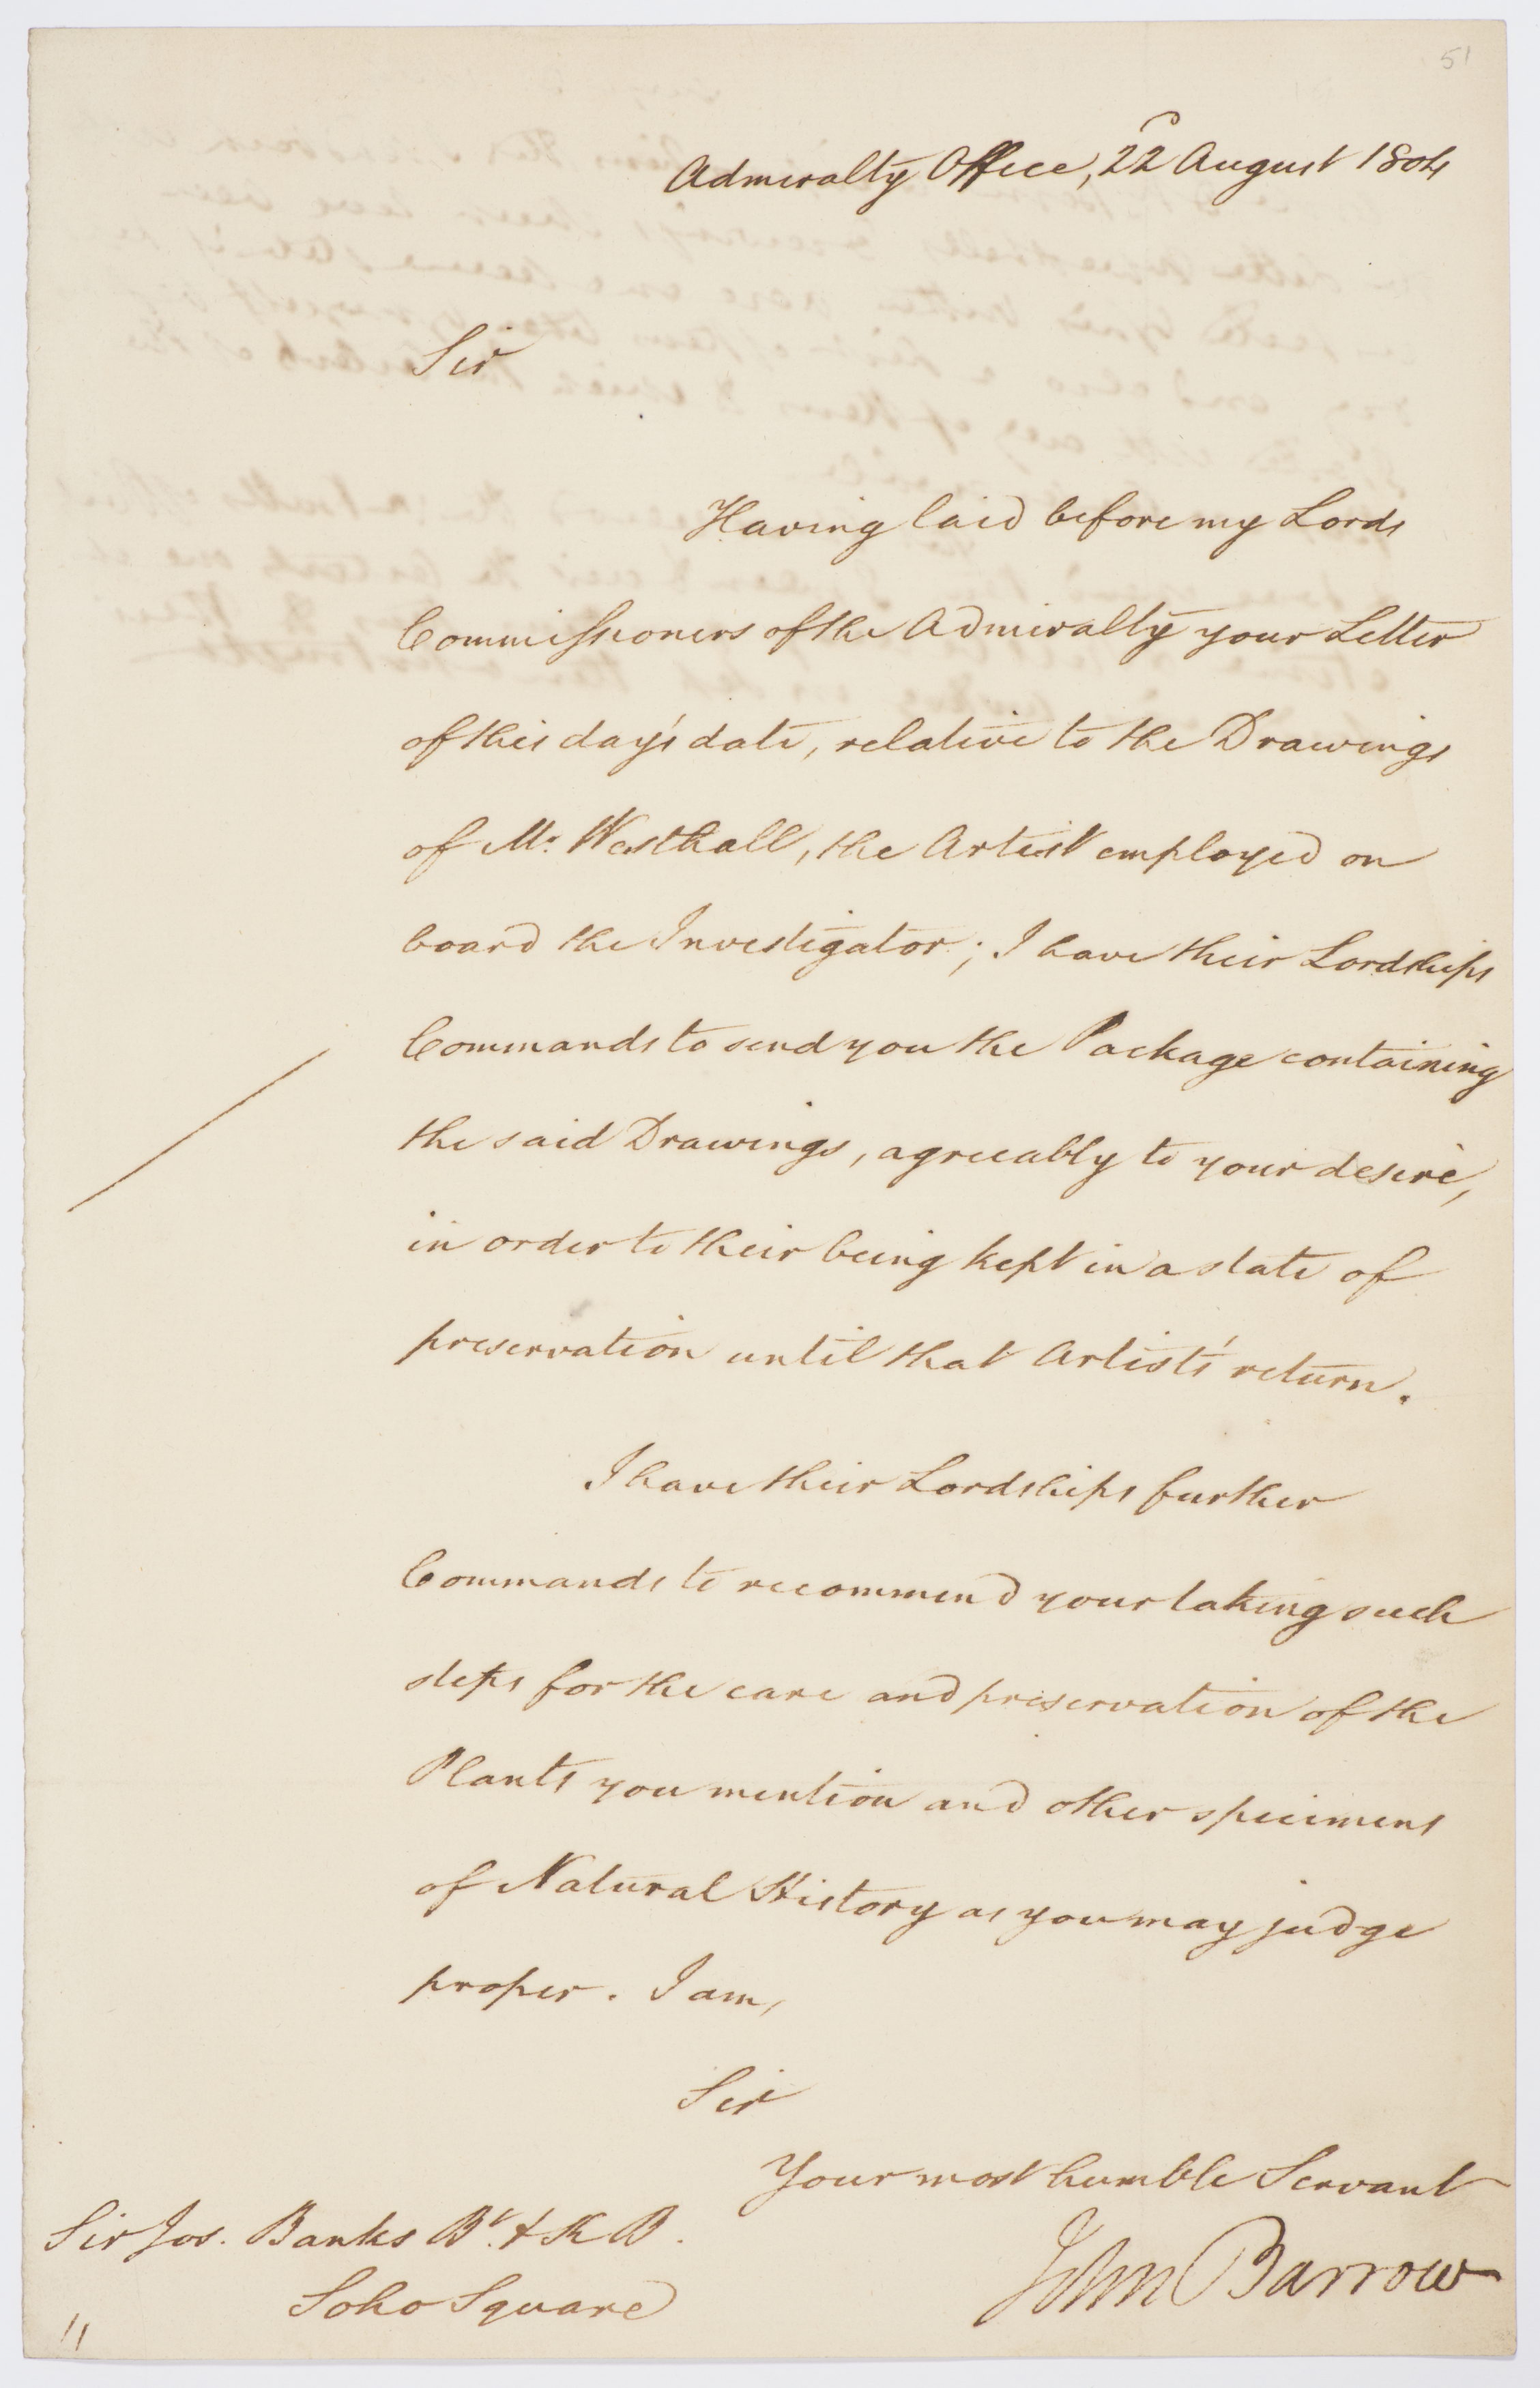 51
Admiralty Office, 22d August 1804
Sir
Having laid before my Lords
Commissioners of the Admiralty your Letter
of this day's date, relative to the Drawings
of Mr. Westhall, the Artist employed on
board the Investigator; I have their Lordships
Commands to send you the Package containing
the said Drawings, agreeably to your desire,
in order to their being kept in a state of
preservation until that Artist's return.
I have their Lordships further
Commands to recommend your taking such
steps for the care and preservation of the
Plants you mention and other specimens
of Natural History as you may judge
proper. I am,
Sir
Your most humble Servant
John Barrow
Sir Jos. Banks Bt. & K B.
Soho Square